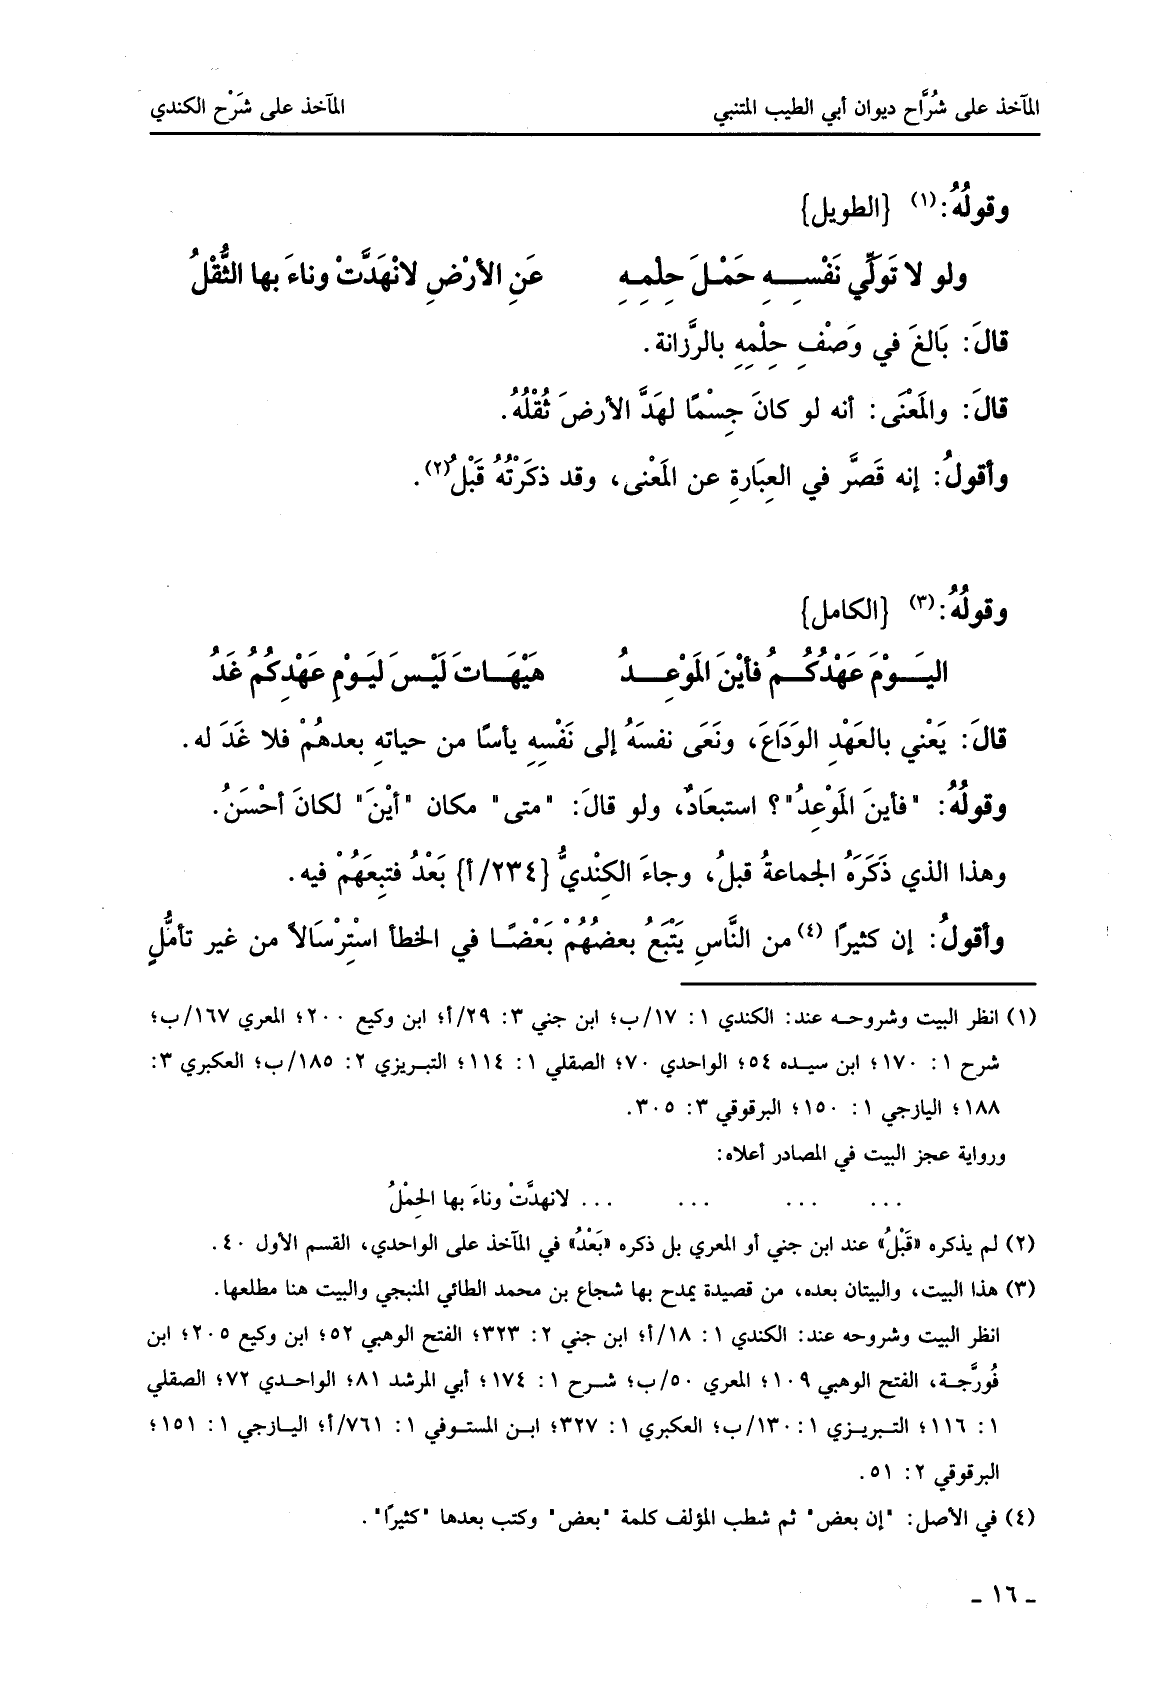 المآخذ على شُرَّاح ديوان أبي الطيب المتنبي المآخذ على شَرْح الكندي
وقولُهُ:(١) {الطويل}
ولو لا تَولِّي نَفْسِهِ حَمْلَ حِلْمِهِ عَنِ الأرْضِ لانْهَدَّتْ وناءَ بها الثُّقْلُ
قالَ: بَالغَ في وَصْفِ حِلْمِهِ بالرَّزانة.
قالَ: والمَعْنَى: أنه لو كانَ جِسْمًا لهَدَّ الأرضَ ثُقْلُهُ.
وأقولُ: إنه قَصَّر في العِبَارةِ عن المَعْنى، وقد ذكَرْتُهُ قَبْلُ(٢).
وقولُهُ:(٣) {الكامل}
اليَـوْمَ عَهْدُكُـمُ فأيْنَ المَوْعِـدُ هَيْهَـاتَ لَيْـسَ لَيَـوْمِ عَهْدِكُمُ غَدُ
قالَ: يَعْني بالعَهْدِ الوَدَاعَ، ونَعَى نفسَهُ إلى نَفْسِهِ يأسًا من حياتهِ بعدهُمْ فلا غَدَ له.
وقولُهُ: "فأينَ المَوْعِدُ"؟ استبعَادٌ، ولو قالَ: "متى" مكان "أيْنَ" لكانَ أحْسَنُ.
وهذا الذي ذَكَرَهُ الجماعةُ قبلُ، وجاءَ الكِنْديُّ {٢٣٤/أ} بَعْدُ فتبِعَهُمْ فيه.
وأقولُ: إن كثيرًا (٤) من النَّاسِ يَتْبَعُ بعضُهُمْ بَعْضًا في الخطأ اسْتِرْسَالاً من غير تأملٍ
(١) انظر البيت وشروحه عند: الكندي ١: ١٧/ب؛ ابن جني ٣: ٢٩/أ؛ ابن وكيع ٢٠٠؛ المعري ١٦٧/ب؛
شرح ١: ١٧٠؛ ابن سيده ٥٤؛ الواحدي ٧٠؛ الصقلي ١: ١١٤؛ التبريزي ٢: ١٨٥/ب؛ العكبري ٣:
١٨٨؛ اليازجي ١: ١٥٠؛ البرقوقي ٣: ٣٠٥.
ورواية عجز البيت في المصادر أعلاه:
... ... ... ... لانهدَّتْ وناءَ بها الحِمْلُ
(٢) لم يذكره «قَبْلُ» عند ابن جني أو المعري بل ذكره «بَعْدُ» في المآخذ على الواحدي، القسم الأول ٤٠.
(٣) هذا البيت، والبيتان بعده، من قصيدة يمدح بها شجاع بن محمد الطائي المنبجي والبيت هنا مطلعها.
انظر البيت وشروحه عند: الكندي ١: ١٨/أ؛ ابن جني ٢: ٣٢٣؛ الفتح الوهبي ٥٢؛ ابن وكيع ٢٠٥؛ ابن
فُورَّجة، الفتح الوهبي ١٠٩؛ المعري ٥٠/ب؛ شرح ١: ١٧٤؛ أبي المرشد ٨١؛ الواحدي ٧٢؛ الصقلي
١: ١١٦؛ التبريزي ١: ١٣٠/ب؛ العكبري ١: ٣٢٧؛ ابن المستوفي ١: ٧٦١/أ؛ اليازجي ١: ١٥١؛
البرقوقي ٢: ٥١.
(٤) في الأصل: "إن بعض" ثم شطب المؤلف كلمة "بعض" وكتب بعدها "كثيرًا".
ـ ١٦ ـ